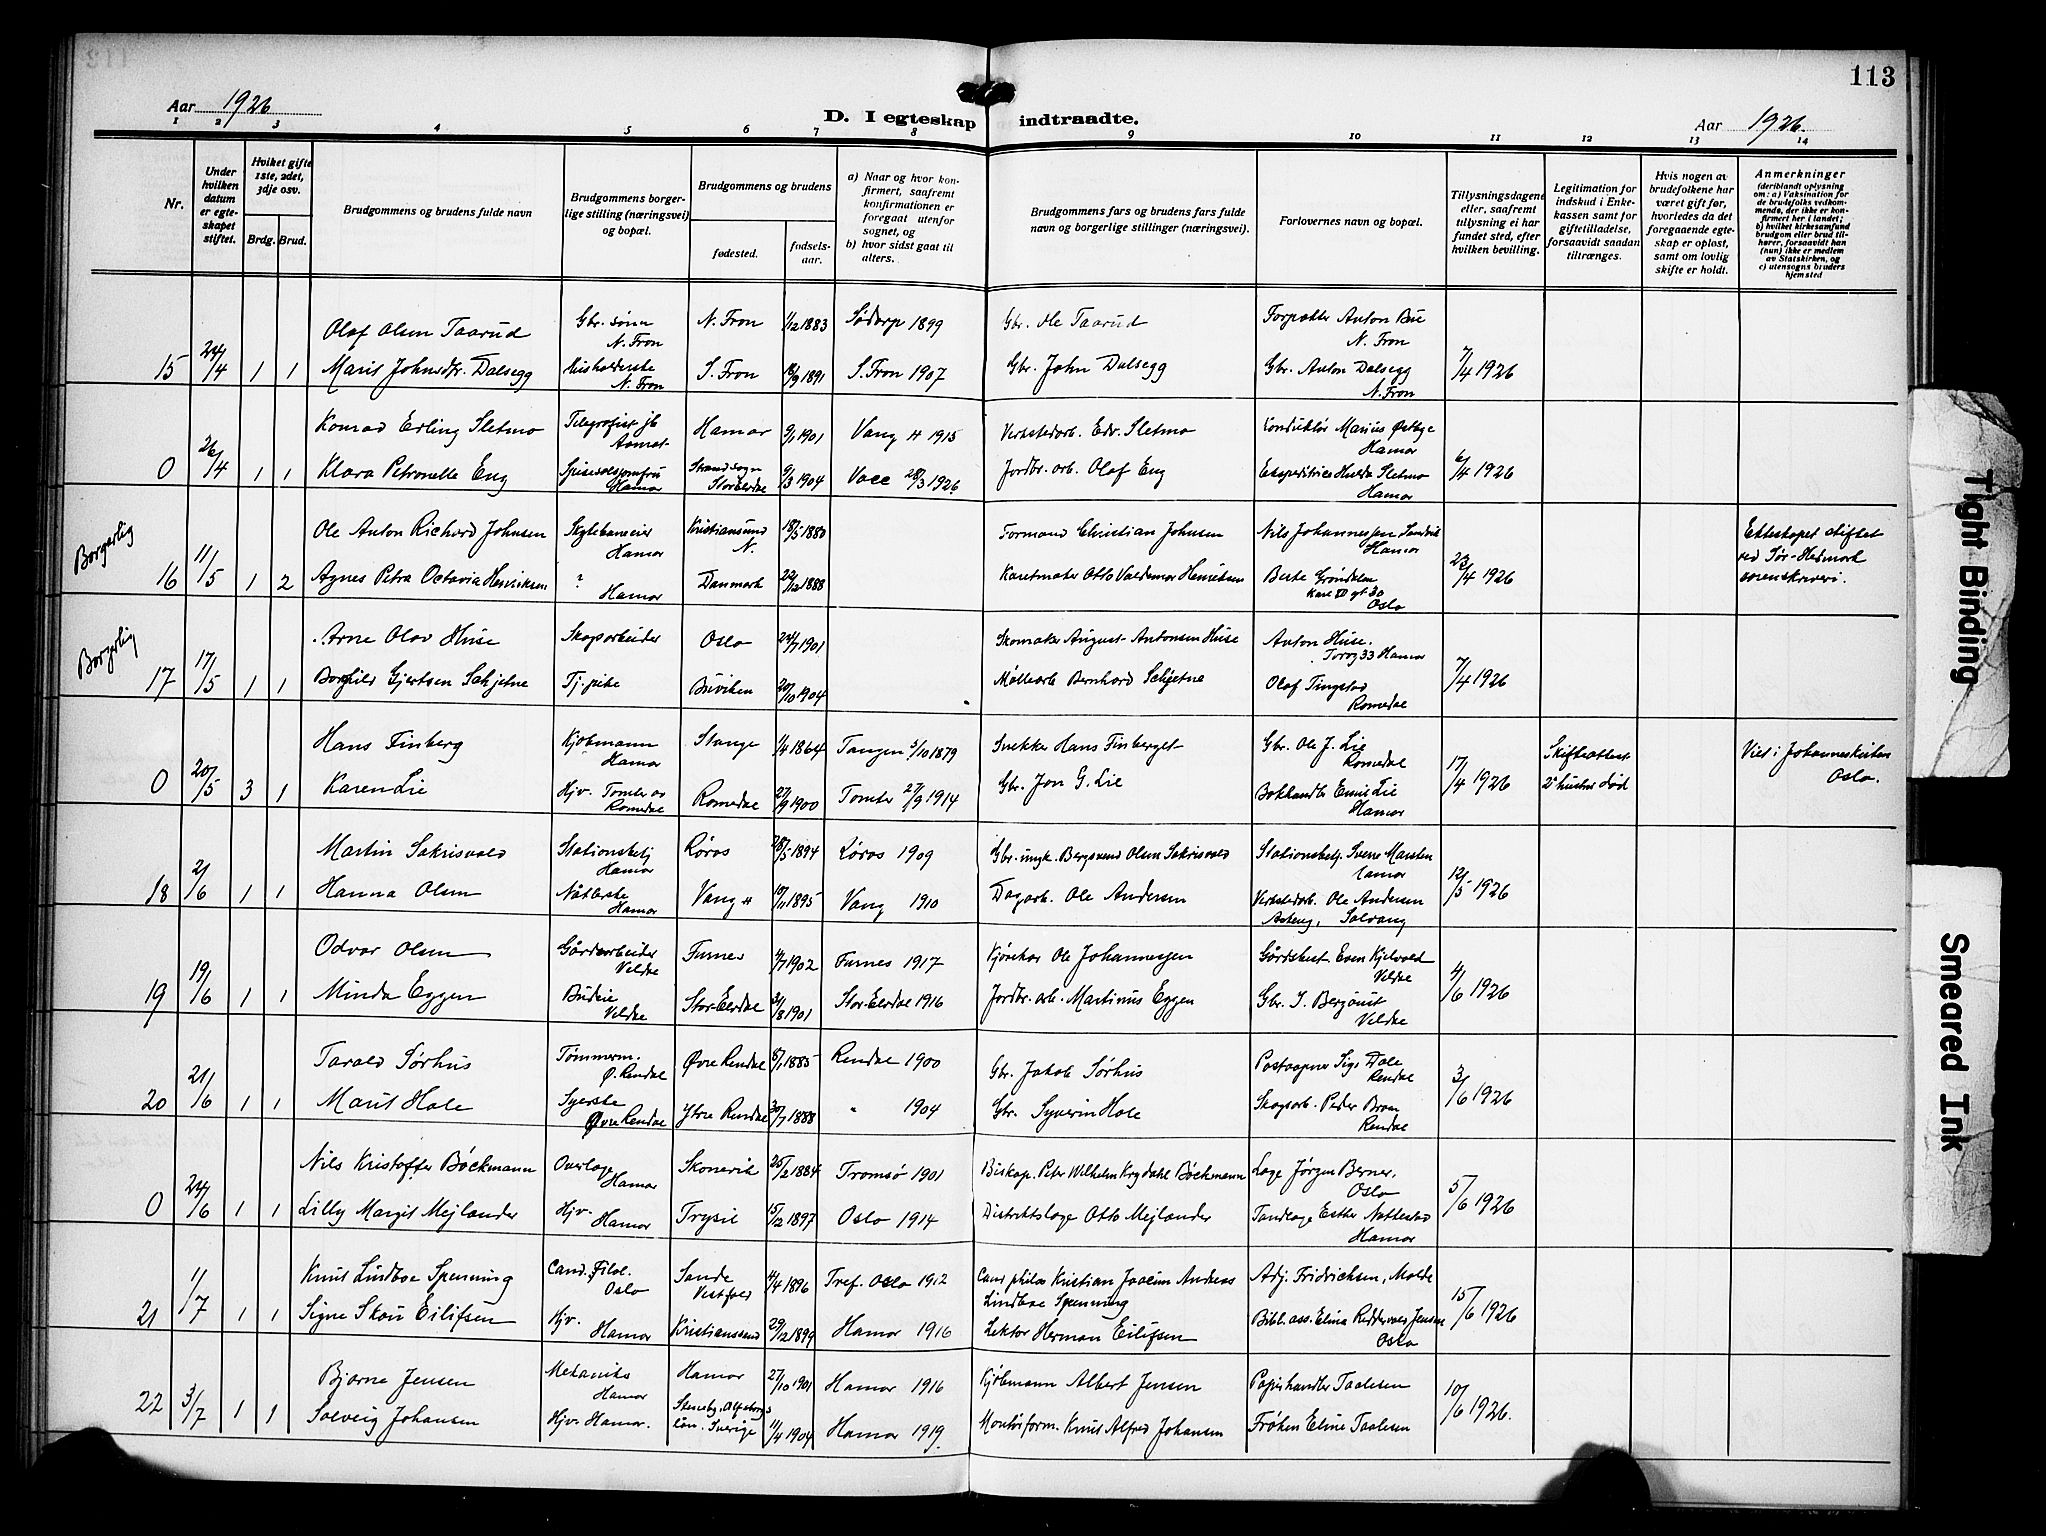 113
Aar 1926
D. I egteskap indtraadte.
Aar 1926.
1 2 3 4 5 6 7 8 9 10 11 12 13 14
Nr.
Under hvilken datum er egteskapet stiftet.
Hvilket gifte 1ste, 2det, 3dje osv.
Brdg. Brud.
Brudgommens og brudens fulde navn
Brudgommens borgerlige stilling (næringsvei) og bopæl.
Brudgommens og brudens
fødested.
fødselsaar.
a) Naar og hvor konfirmert, saafremt konfirmationen er foregaat utenfor sognet, og
b) hvor sidst gaat til alters.
Brudgommens fars og brudens fars fulde navn og borgerlige stillinger (næringsvei).
Forlovernes navn og bopæl.
Tillysningsdagene eller, saafremt tillysning ei har fundet sted, efter hvilken bevilling.
Legitimation for indskud i Enkekassen samt for giftetilladelse, forsaavidt saadan tiltrænges.
Hvis nogen av brudefolkene har været gift før, hvorledes da det foregaaende egteskap er opløst, samt om lovlig skifte er holdt.
Anmerkninger
(deriblandt oplysning om: a) Vaksination for de brudefolks vedkommende, der ikke er konfirmert her i landet; b) hvilket kirkesamfund brudgom eller brud tilhører, forsaavidt han (hun) ikke er medlem av Statskirken, og c) utensogns bruders hjemsted
Olaf Olsen Taarud Gbr. sønn N. Fron N. Fron 1/12 1883 Sødorp 1899 Gbr. Ole Taarud Forpakter Anton Bu N. Fron
15 24/4 1 1 Marit Johnsdr. Dalsegg Husholderske N. Fron S. Fron 18/9 1891 S. Fron 1907 Gbr. John Dalsegg Gbr. Anton Dalsegg N. Fron 7/4 1926
Konrad Erling Sletmo Telegrafist jb Aamot Hamar 9/1 1901 Vang H 1915 Verkstedarb. Edv. Sletmo Konduktør Marius Østbye Hamar
0 26/4 1 1 Klara Petronelle Eng Spisesalsjomfru Hamar Strand sogn Storelvdal 9/3 1904 28/3 1926 Jordbr. arb. Olaf Eng Ekspeditrice Hulda Sletmo Hamar 6/4 1926
Borgerlig
Ole Anton Richard Johnsen Skytebaneeier Hamar Kristiansund N. 18/5 1880 Formand Christian Johnsen Nils Johannessen Sandvik Hamar
16 11/5 1 2 Agnes Petra Octavia Henriksen ? Hamar Danmark 22/12 1888 Karetmaker Otto Valdemar Henriksen Grøndalen Oslo 23/4 1926
Ekteskapet stiftet ved Sør-Hedmark sorenskriveri.
Borgerlig
Arne Olav Huse Skogsarbeider Oslo 24/7 1901 Skomaker August Antonsen Huse Anton Huse. Torvg 33 Hamar
17 17/5 1 1 Borghild Gjertsen Tj. pike Buviken 20/10 1904 Møllearb Bernhard Olaf Tingstad Romedal 7/4 1926
Hans Finberg Kjøbmann Hamar Stange 1/4 1864 Tangen 5/10 1879 Snekker Hans Finberget Gbr. Ole J. Lie Romedal
0 20/5 3 1 Karen Lie Hjv. Tomter av Romedal Romedal 27/9 1900 Tomter 27/9 1914 Gbr. Jon G. Lie Bokhandler Emil Lie Hamar 17/4 1926 Skifteattest 2. hustru død
Viet i Johanneskirken Oslo.
Martin Sakrisvold Stationsbetj Hamar Røros 28/5 1894 Røros 1909 Gbr. Bergsvend Olsen Sakrisvold Stationsbetj. Svene Marsten Hamar
18 2/6 1 1 Hanna Olsen Nåtlerske Hamar Vang H 10/11 1895 Vang 1910 Dagarb. Ole Andersen Verkstedarb. Ole Andersen Solvang 12/5 1926
Odvar Olsen Gårdsarbeider Veldre Furnes 4/7 1902 Furnes 1917 Kjørekar Ole Johannessen Gårdsbest Even Kjelvold Veldre
19 19/6 1 1 Minda Eggen Budeie Veldre Stor-Elvdal 31/8 1901 Stor-Elvdal 1916 Jordbr. arb. Martinus Eggen Gbr. S. Bergquist Veldre 4/6 1926
Tarald Sørhus Tømmerm. Ø. Rendal Øvre Rendal 5/1 1885 Rendal 1900 Gbr. Jakob Sørhus Postaapner Sigv Dale Rendal
20 21/6 1 1 Marit Hole Syerske Øvre Rendal Ytre Rendal 30/7 1888 " 1904 Gbr. Syverin Hole Skogsarb. Peder Rendal 3/6 1926
Nils Kristoffer Bøckmann Overlæge Hamar Skonevik 25/2 1884 Tromsø 1901 Biskop. Peter Wilhelm Kreydahl Bøckmann Læge Jørgen Berner, Oslo
0 24/6 1 1 Lilly Margit Mejlænder Hjv. Hamar Trysil 15/12 1897 Oslo 1914 Distriktslæge Otto Mejlænder Tandlæge Esther Nattestad Hamar 5/6 1926
Knut Lindboe Spenning Cand. Filol. Oslo Sande Vestfold 11/4 1896 Tref. Oslo 1912 Cand philos Kristian Joacim Andreas Lindboe Spenning Adj. Fridrichsen, Molde
21 1/7 1 1 Signe Skou Eilifsen Hjv. Hamar Kristianssund 29/12 1899 Hamar 1916 Lektor Herman Eilifsen Bibl. ass. Elina Reddervold Jensen Oslo 15/6 1926
Bjarne Jensen Mekaniker Hamar Hamar 27/10 1901 Hamar 1916 Kjøbmann Albert Jensen Papirhandler Paalesen
22 3/7 1 1 Solveig Johansen Hjv. Hamar. Steneby, Elfsborgs län. Sverige 11/4 1904 Hamar 1919. Montørform. Knut Alfred Johansen Frøken Eline Paalesen 10/6 1926.
Tight Binding
Smeared Ink